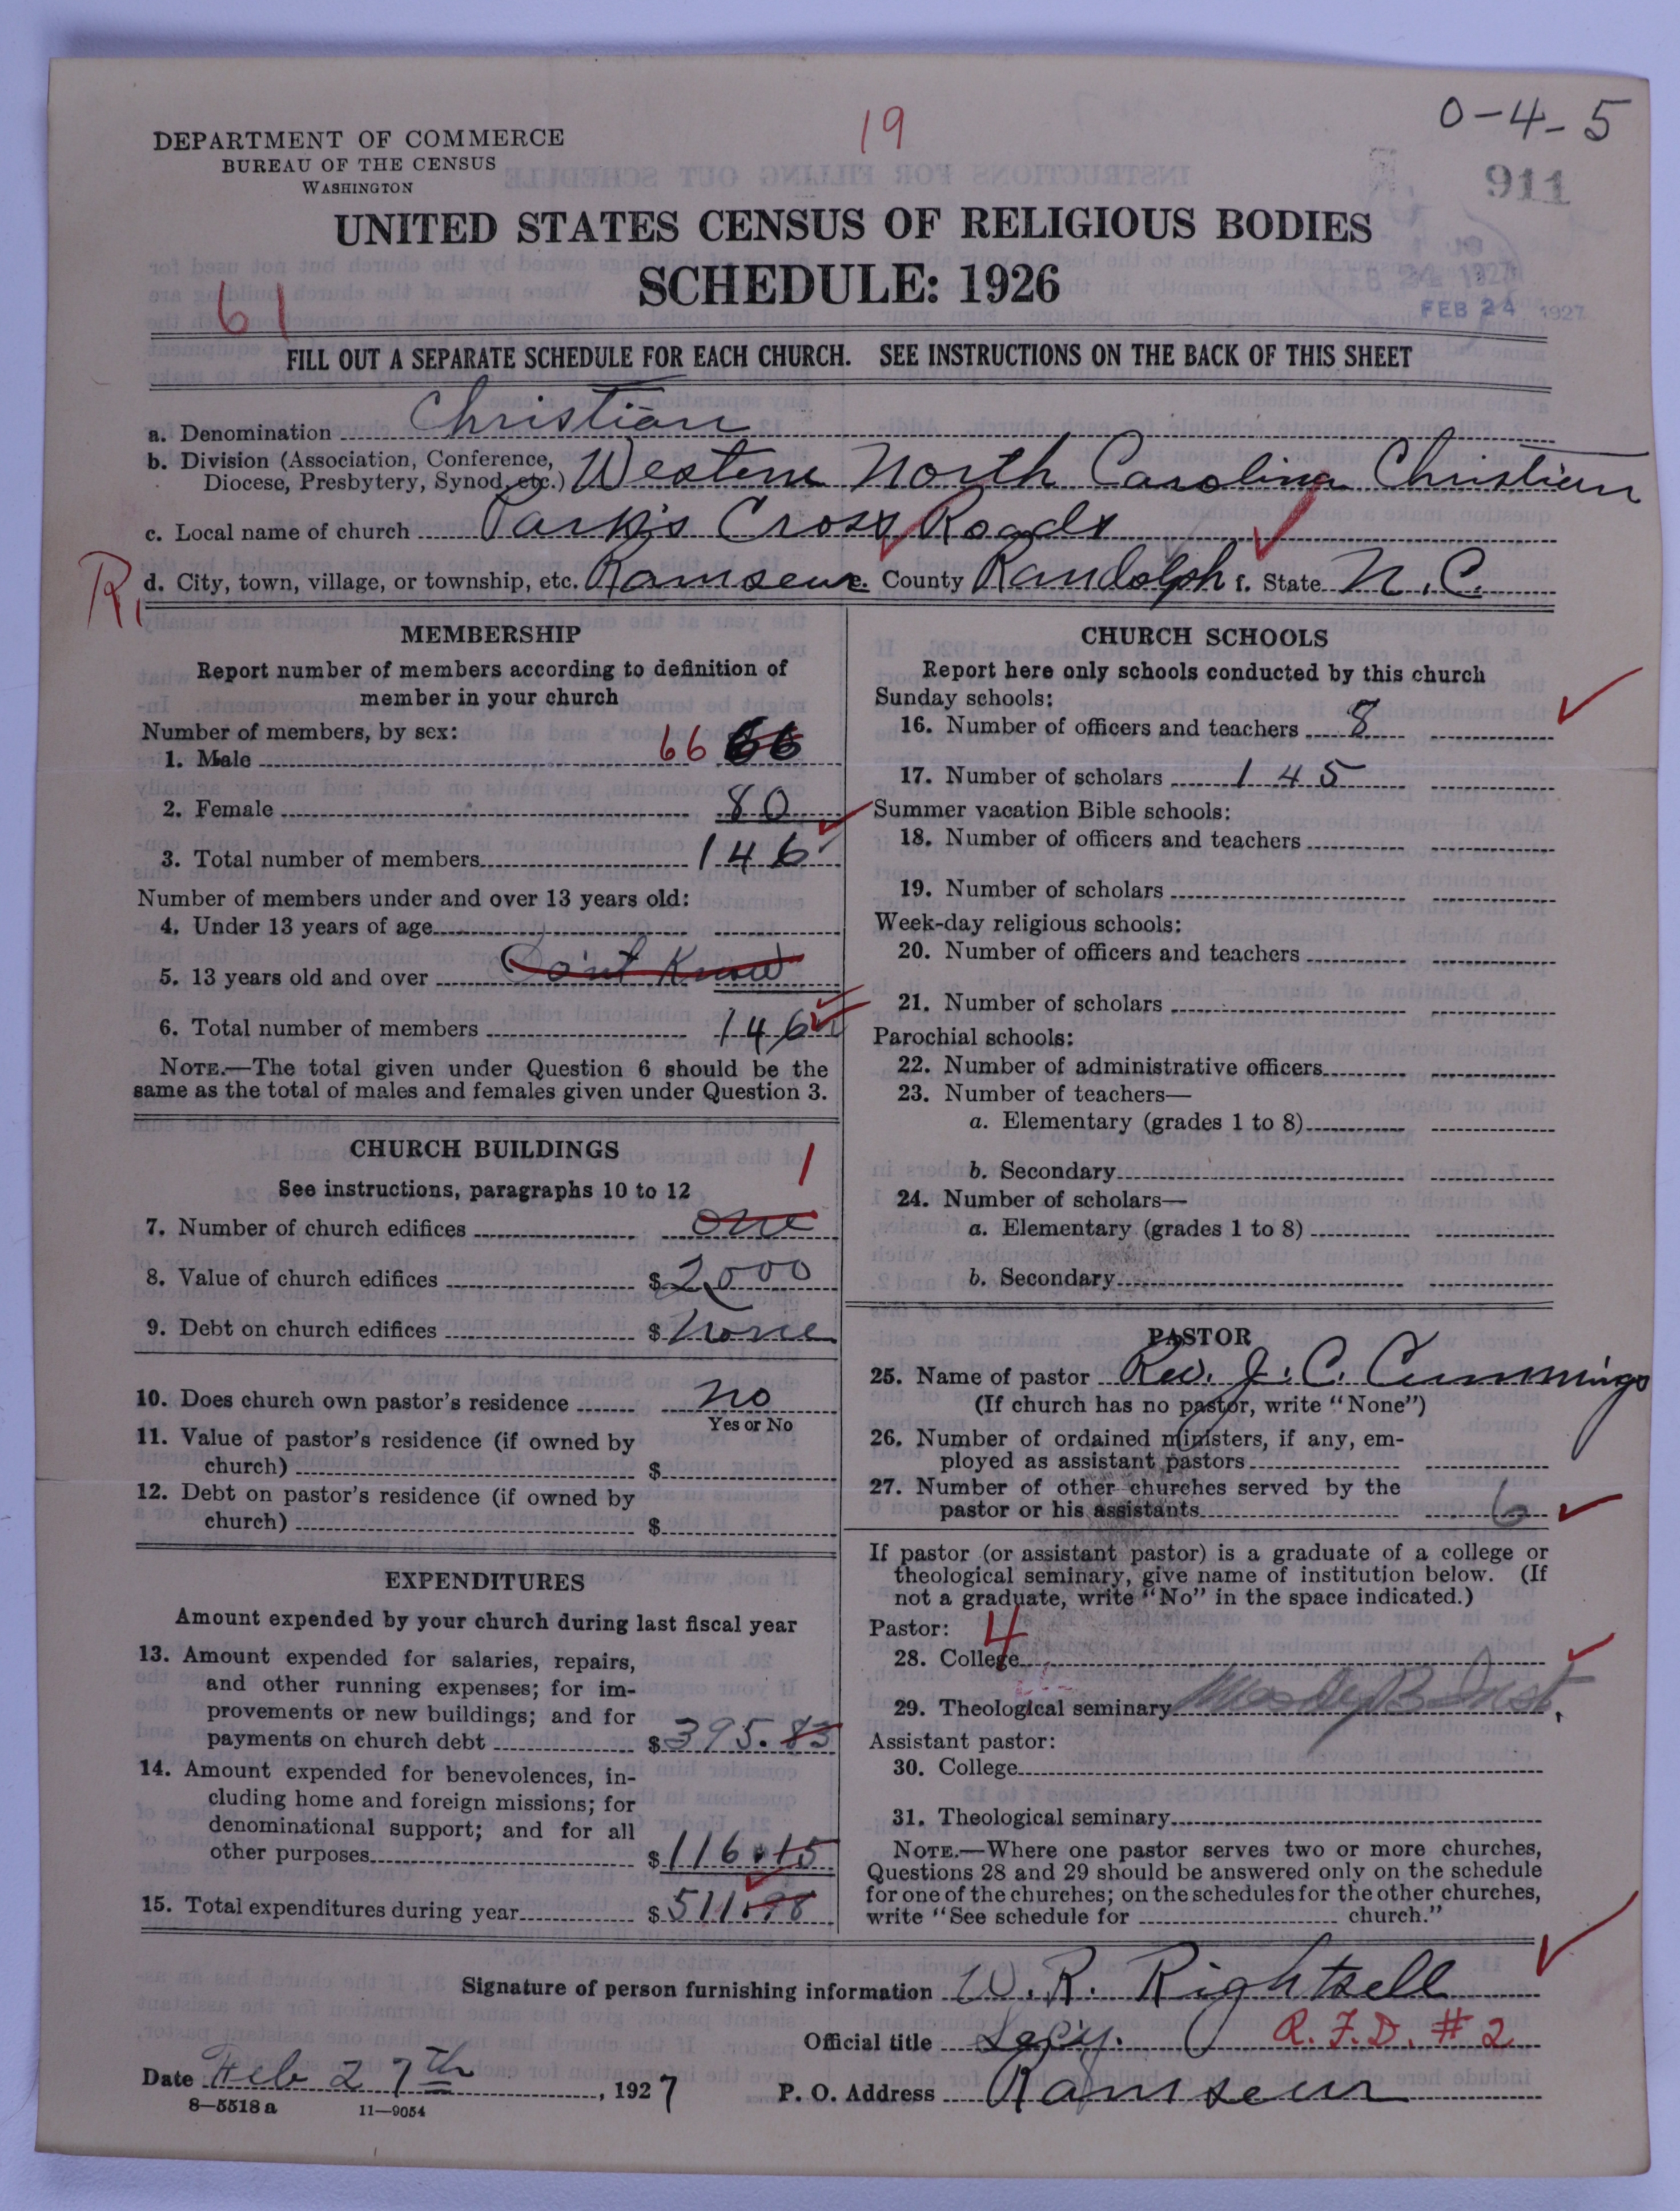 19
0-4-5
DEPARTMENT OF COMMERCE
BUREAU OF THE CENSUS
WASHINGTON
911
UNITED STATES CENSUS OF RELIGIOUS BODIES
SCHEDULE: 1926
FEB 24 1927
61
FILL OUT A SEPARATE SCHEDULE FOR EACH CHURCH. SEE INSTRUCTIONS ON THE BACK OF THIS SHEET
a. Denomination Christian
b. Division (Association, Conference, Diocese, Presbytery, Synod, etc.) Western North Carolina Christian
c. Local name of church Park's Cross Roads
R, d. City, town, village, or township, etc. Ramseur e. County Randolph f. State N.C.
MEMBERSHIP
Report number of members according to definition of
member in your church
Number of members, by sex:
1. Male 66 66
2. Female 80
3. Total number of members 146
Number of members under and over 13 years old:
4. Under 13 years of age
5. 13 years old and over Don't Know
6. Total number of members 146
NOTE.—The total given under Question 6 should be the
same as the total of males and females given under Question 3.
CHURCH BUILDINGS
1
See instructions, paragraphs 10 to 12
7. Number of church edifices one
8. Value of church edifices $2000
9. Debt on church edifices $ None
10. Does church own pastor's residence No
Yes or No
11. Value of pastor's residence (if owned by
church) $
12. Debt on pastor's residence (if owned by
church) $
EXPENDITURES
Amount expended by your church during last fiscal year
13. Amount expended for salaries, repairs,
and other running expenses; for im-
provements or new buildings; and for
payments on church debt $395.83
14. Amount expended for benevolences, in-
cluding home and foreign missions; for
denominational support; and for all
other purposes $116.15
15. Total expenditures during year $511.98
CHURCH SCHOOLS
Report here only schools conducted by this church
Sunday schools:
16. Number of officers and teachers 8
17. Number of scholars 145
Summer vacation Bible schools:
18. Number of officers and teachers
19. Number of scholars
Week-day religious schools:
20. Number of officers and teachers
21. Number of scholars
Parochial schools:
22. Number of administrative officers
23. Number of teachers—
a. Elementary (grades 1 to 8)
b. Secondary
24. Number of scholars—
a. Elementary (grades 1 to 8)
b. Secondary
PASTOR
25. Name of pastor Rev. J. C. Cummings
(If church has no pastor, write "None")
26. Number of ordained ministers, if any, em-
ployed as assistant pastors
27. Number of other churches served by the
pastor or his assistants 6
If pastor (or assistant pastor) is a graduate of a college or
theological seminary, give name of institution below. (If
not a graduate, write "No" in the space indicated.)
Pastor: 4
28. College
29. Theological seminary Moody B Inst.
Assistant pastor:
30. College
31. Theological seminary
NOTE.—Where one pastor serves two or more churches,
Questions 28 and 29 should be answered only on the schedule
for one of the churches; on the schedules for the other churches,
write "See schedule for church."
Signature of person furnishing information W. R. Rightsell
Official title Secy. R.F.D. #2
Date Feb 27th, 1927 P. O. Address Ramseur
8—5518 a 11—9054